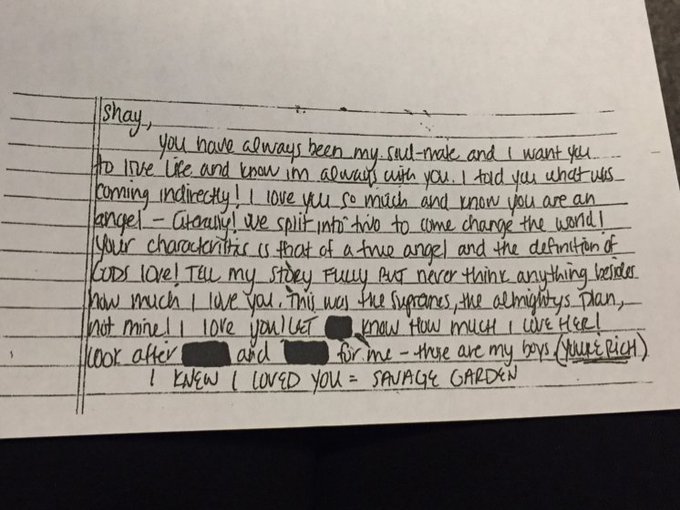 Shay,
you have always been my soul-mate and I want you
to live life and know im always with you. I told you what was
coming indirectly! I love you so much and know you are an
angel - literally! We split into two to come change the world!
your characteristics is that of a true angel and the definition of
GODS love! TELL my STORY FULLY BUT never think anything besides
how much I love you. This was the supremes, the almightys plan,
not mine! I love you! LET know HOW MUCH I LOVE HER!
look after and for me - those are my boys (YOU'RE RICH)
I KNEW I LOVED YOU = SAVAGE GARDEN